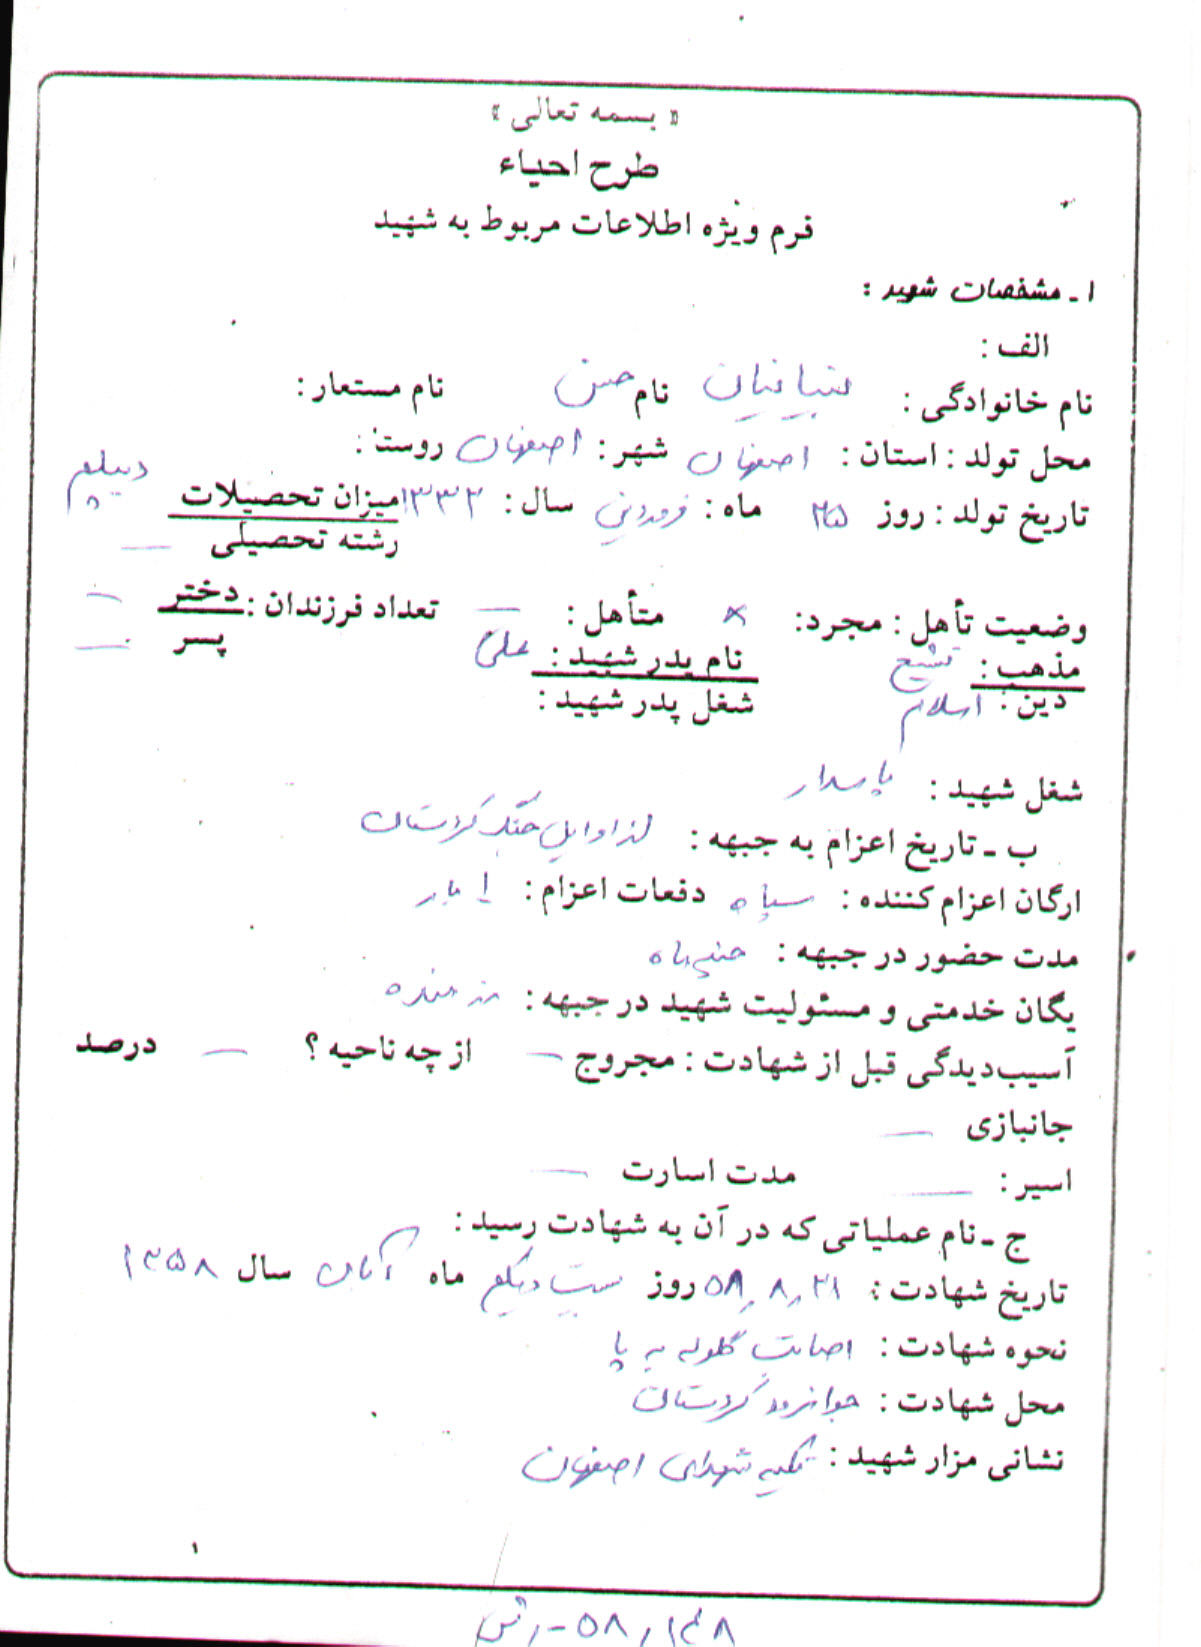 « بسمه تعالی »
طرح احیاء
فرم ویژه اطلاعات مربوط به شهید
۱ ـ مشخصات شهید :
الف :
نام خانوادگی : بنیانیان نام حسن نام مستعار :
محل تولد : استان : اصفهان شهر : اصفهان روستا :
تاریخ تولد : روز ۲۵ ماه : فروردین سال : ۱۳۳۲ میزان تحصیلات دیپلم
رشته تحصیلی —
وضعیت تأهل : مجرد: × متأهل : — تعداد فرزندان : دختر —
پسر —
مذهب : تشیع نام پدر شهید : علی
دین : اسلام شغل پدر شهید :
شغل شهید : پاسدار
ب ـ تاریخ اعزام به جبهه : از اوایل جنگ کردستان
ارگان اعزام کننده : سپاه دفعات اعزام : ۱ بار
مدت حضور در جبهه : چند ماه
یگان خدمتی و مسئولیت شهید در جبهه : رزمنده
آسیب‌دیدگی قبل از شهادت : مجروح — از چه ناحیه ؟ — درصد
جانبازی —
اسیر : — مدت اسارت —
ج ـ نام عملیاتی که در آن به شهادت رسید :
تاریخ شهادت : ۵۸٫۸٫۲۱ روز بیست و یکم ماه آبان سال ۱۳۵۸
نحوه شهادت : اصابت گلوله به پا
محل شهادت : جوانرود کردستان
نشانی مزار شهید : تکیه شهدای اصفهان
۱